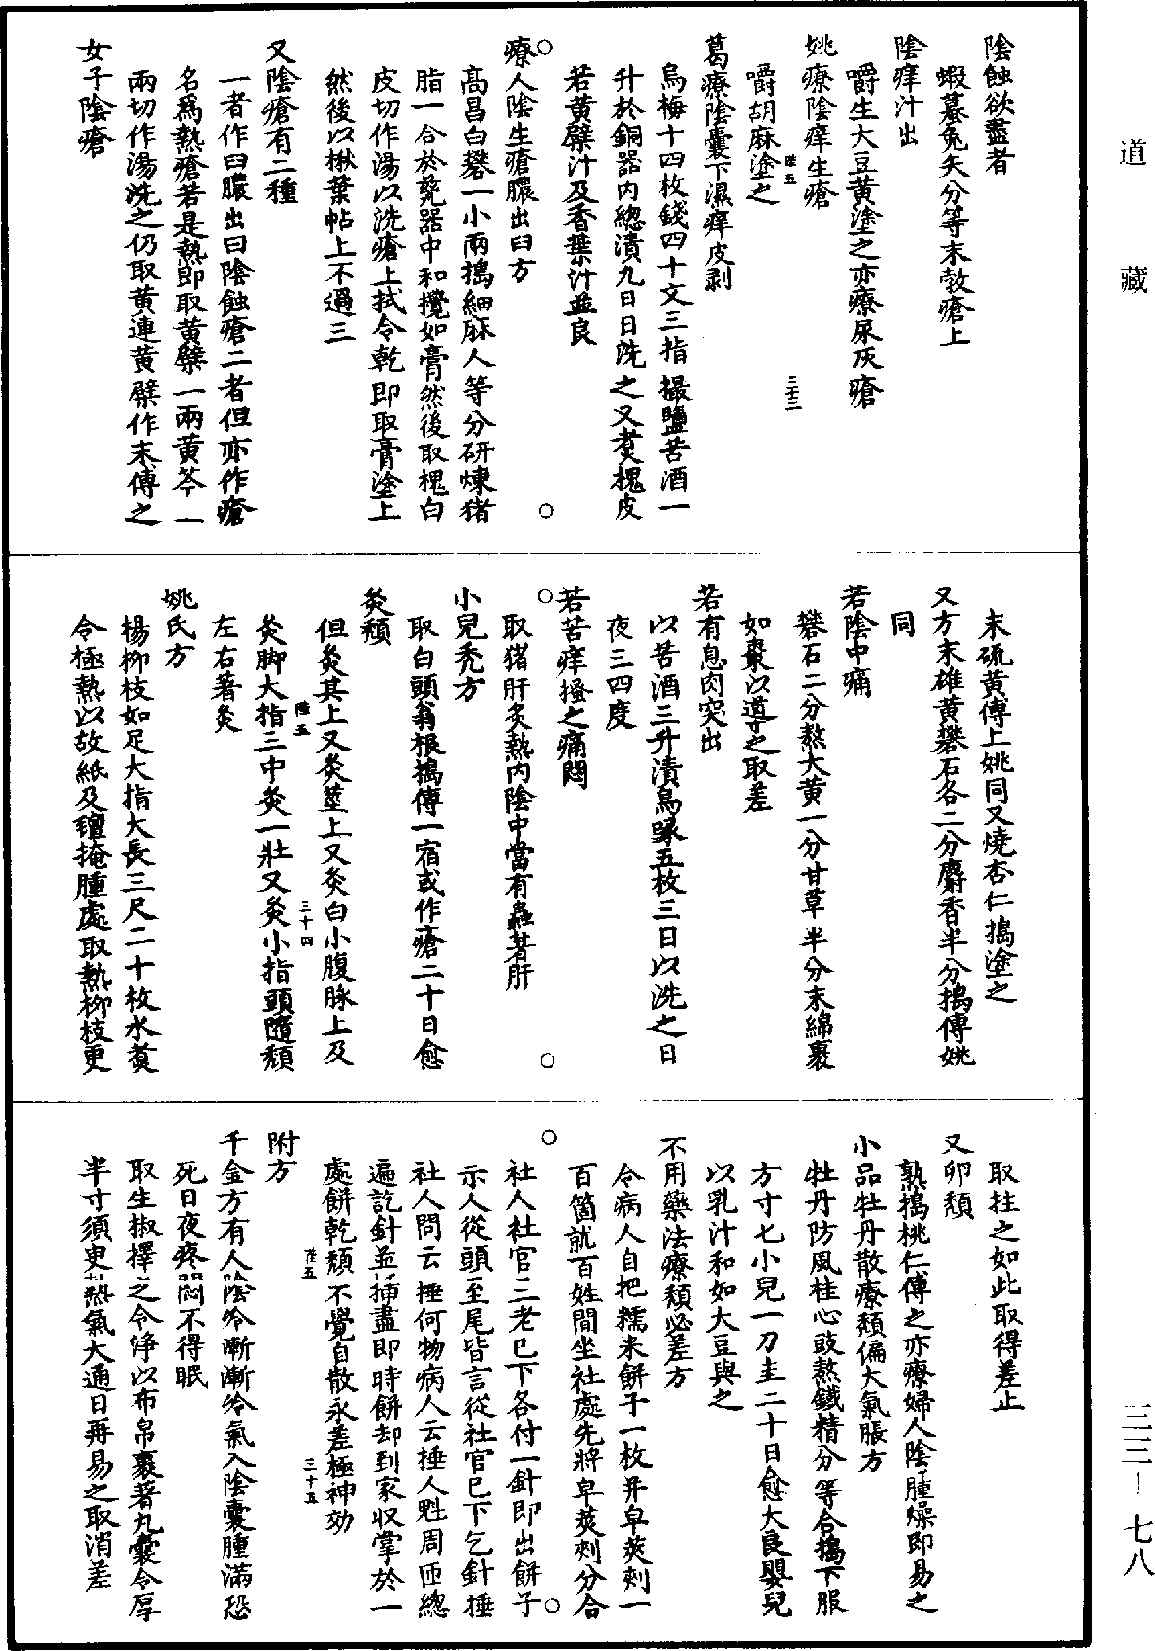 道藏
陰蝕欲盡者
蝦蟇兔矢分等末勃瘡上
陰痒汁出
嚼生大豆黃塗之亦療尿灰瘡
姚療陰痒生瘡
陸五
三十三
嚼胡麻塗之
葛療陰囊下濕痒皮剥
烏梅十四枚錢四十文三指撮鹽苦酒一
升於銅器内總漬九日日洗之又煮槐皮
若黃蘗汁及香葉汁並良
療人陰生瘡膿出臼方
高昌白礬一小兩搗細麻人等分研煉猪
脂一合於甆器中和攪如膏然後取槐白
皮切作湯以洗瘡上拭令乾即取膏塗上
然後以楸葉帖上不過三
又陰瘡有二種
一者作臼膿出曰陰蝕瘡二者但亦作瘡
名爲熱瘡若是熱即取黃蘗一兩黃芩一
兩切作湯洗之仍取黃連黃蘗作末傅之
女子陰瘡
末硫黃傅上姚同又燒杏仁搗塗之
又方末雄黃礬石各二分麝香半分搗傅姚
同
若陰中痛
礬石二分熬大黃一分甘草半分末綿裹
如棗以導之取差
若有息肉突出
以苦酒三升漬烏喙五枚三日以洗之日
夜三四度
若苦痒搔之痛悶
取猪肝炙熱内陰中當有蟲著肝
小兒秃方
取白頭翁根搗傅一宿或作瘡二十日愈
灸㿗
但灸其上又灸莖上又灸白小腹脉上及
陸五
三十四
灸脚大指三中灸一壯又灸小指頭隨㿗
左右著灸
姚氏方
楊柳枝如足大指大長三尺二十枚水煮
令極熱以故紙及氊掩腫處取熱柳枝更
取拄之如此取得差止
又卵㿗
熟搗桃仁傅之亦療婦人陰腫燥即易之
小品牡丹散療㿗偏大氣脹方
牡丹防風桂心豉熬鐵精分等合搗下服
方寸匕小兒一刀圭二十日愈大良嬰兒
以乳汁和如大豆與之
不用藥法療㿗必差方
令病人自把糯米餅子一枚并皁莢刺一
百箇就百姓間坐社處先將皁莢刺分合
社人社官三老已下各付一針即出餅子
示人從頭至尾皆言從社官已下乞針捶
社人問云捶何物病人云捶人魁周匝總
遍訖針並插盡即時餅却到家收掌於一
處餅乾㿗不覺自散永差極神効
陸五
三十五
附方
千金方有人陰冷漸漸冷氣入陰囊腫滿恐
死日夜疼悶不得眠
取生椒擇之令淨以布帛裹著丸囊令厚
半寸須臾熱氣大通日再易之取消差
三三—七八